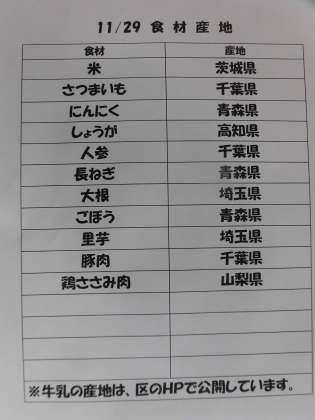 11/29 食材産地
食材 産地
米 茨城県
さつまいも 千葉県
にんにく 青森県
しょうが 高知県
人参 千葉県
長ねぎ 青森県
大根 埼玉県
ごぼう 青森県
里芋 埼玉県
豚肉 千葉県
鶏ささみ肉 山梨県
※牛乳の産地は、区のHPで公開しています。